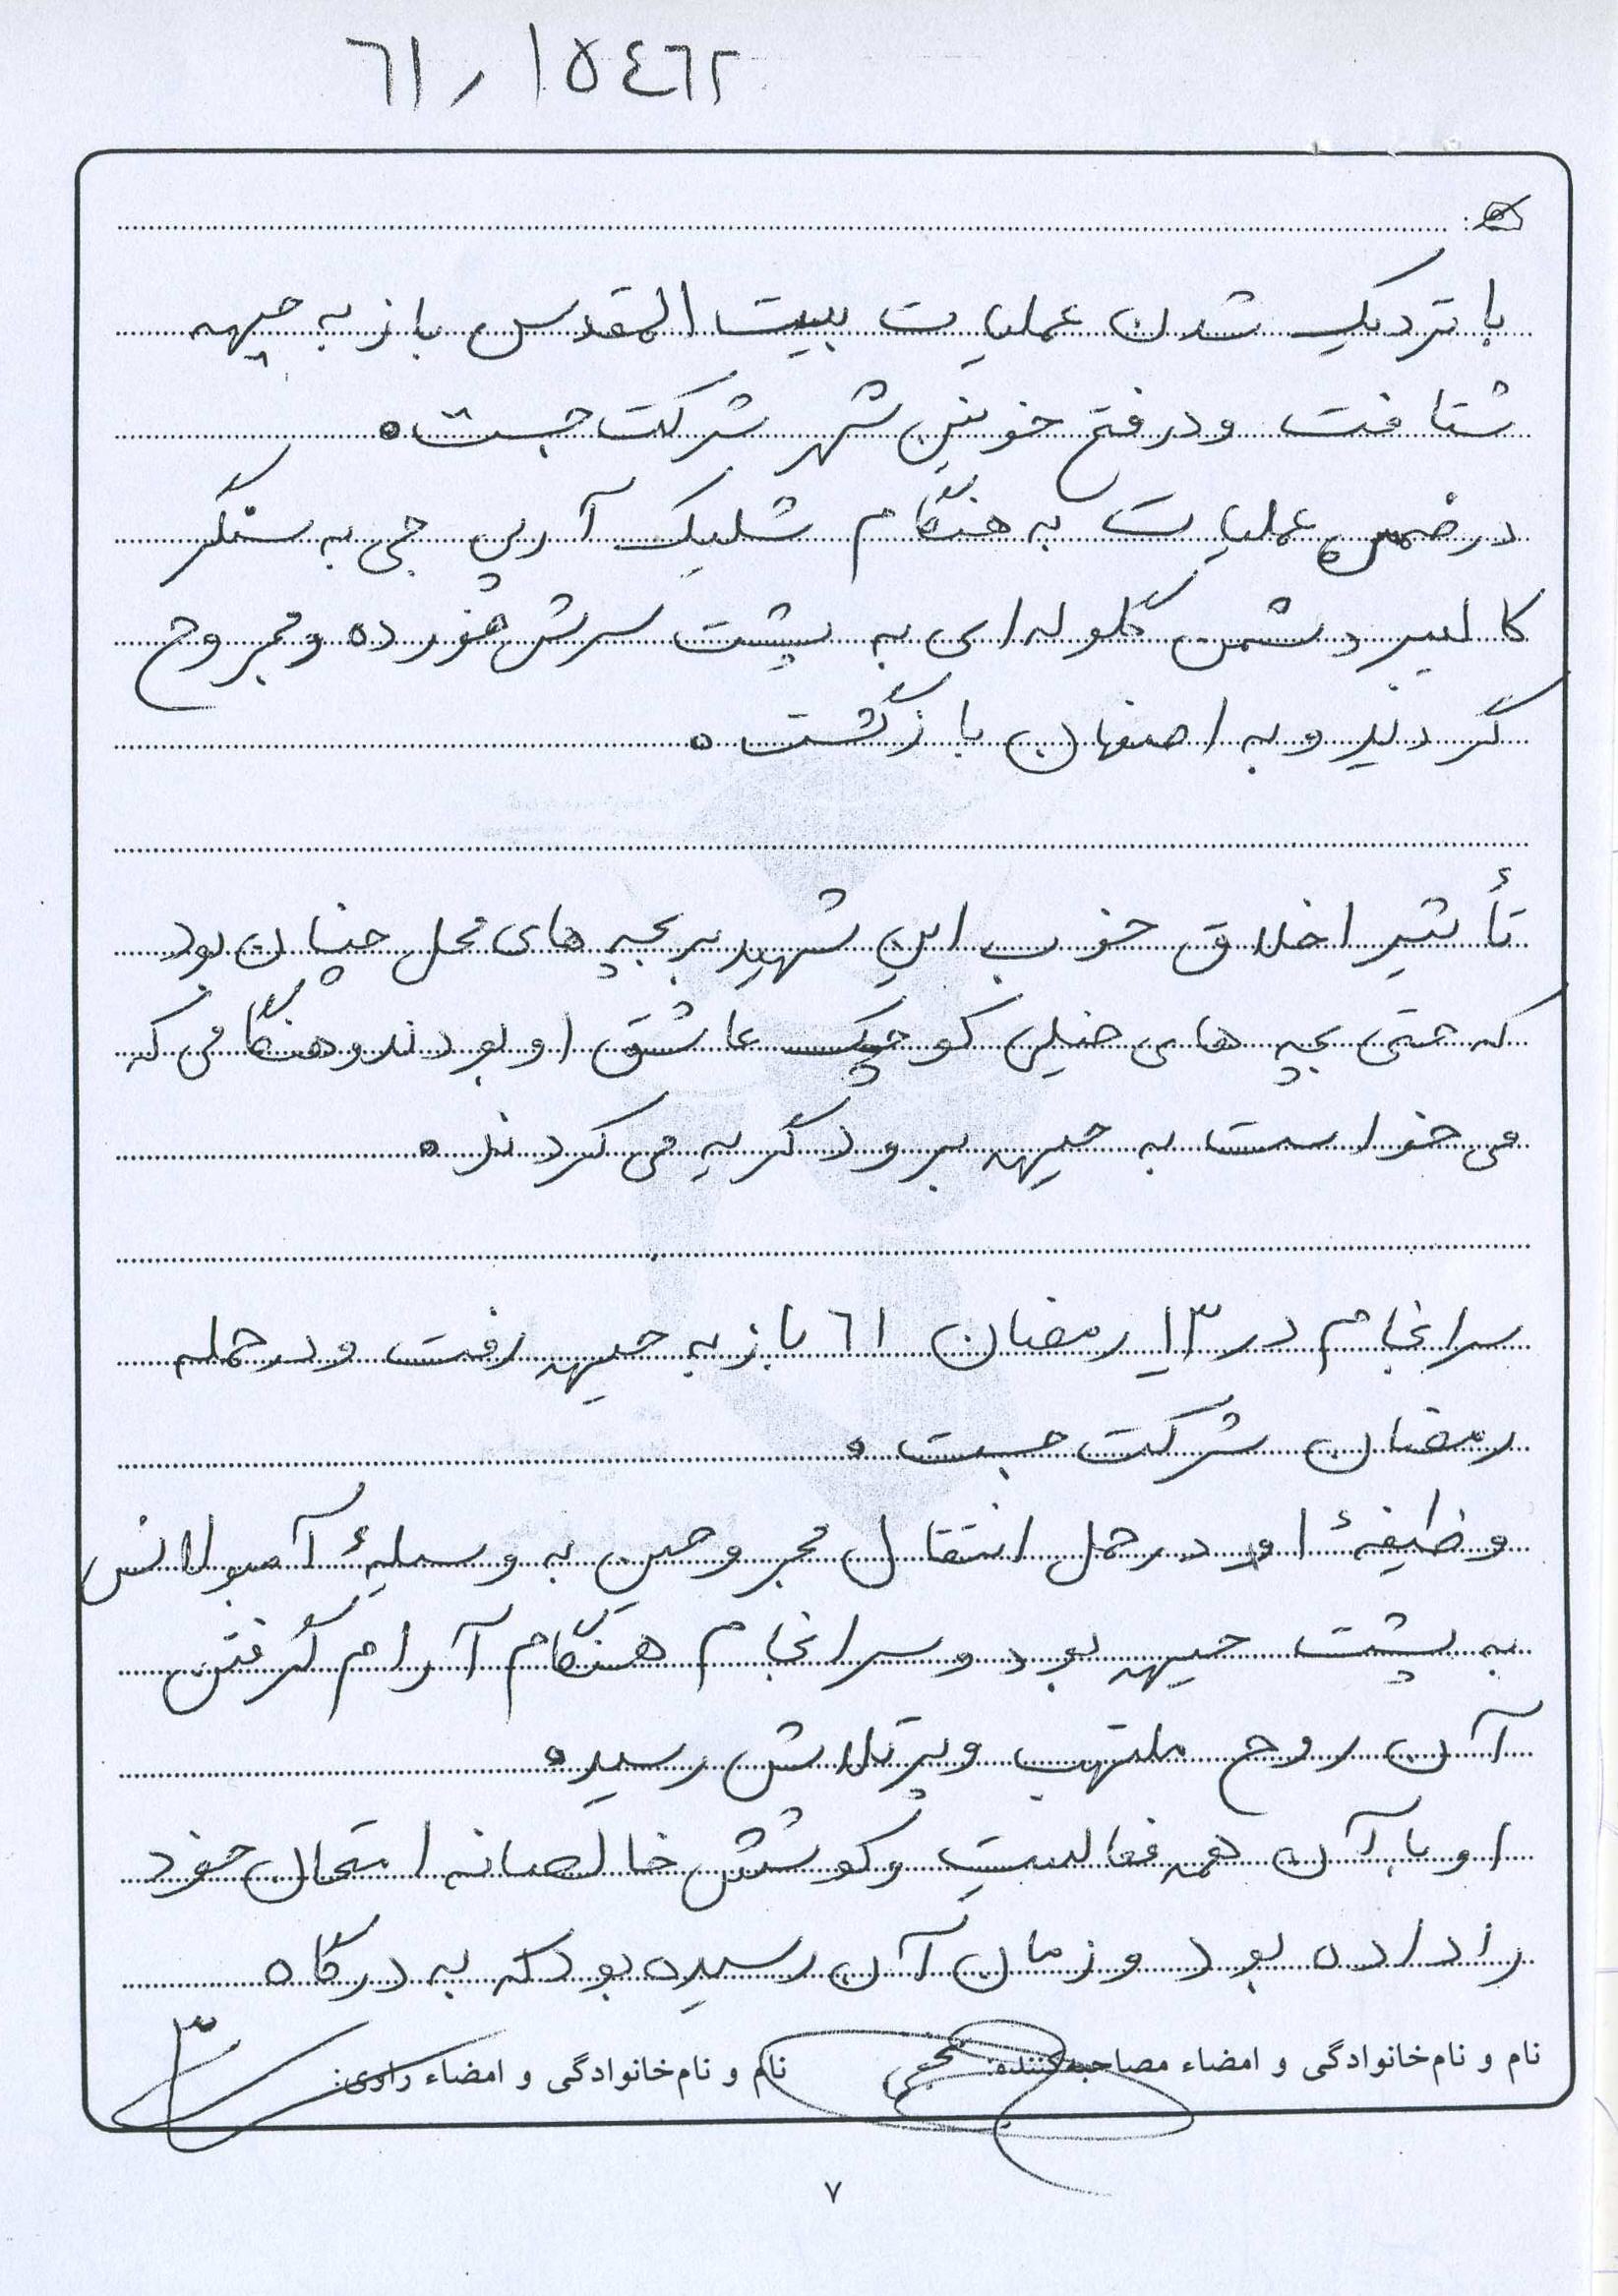 ٦١٫١٥٤٦٢
با نزدیک شدن عملیات بیت المقدس باز به جبهه
شتافت و در فتح خونین شهر شرکت جست.
در ضمن عملیات به هنگام شلیک آرپی جی به سنگر
کالیبر دشمن گلوله ای به پشت سرش خورده و مجروح
گردید و به اصفهان بازگشت.
تأثیر اخلاق خوب این شهید بر بچه های محل چنان بود
که حتی بچه های خیلی کوچک عاشق او بودند و هنگامی که
می خواست به جبهه برود گریه می کردند.
سرانجام در ١٣ رمضان ٦١ باز به جبهه رفت و در حمله
رمضان شرکت جست.
وظیفهٔ او در حمل انتقال مجروحین به وسیلهٔ آمبولانس
به پشت جبهه بود و سرانجام هنگام آرام گرفتن
آن روح ملتهب و پرتلاش رسید.
او با آن همه فعالیت و کوشش خالصانه امتحان خود
را داده بود و زمان آن رسیده بود که به درگاه
نام و نام‌خانوادگی و امضاء مصاحبه‌کننده: نام و نام‌خانوادگی و امضاء راوی:
۷